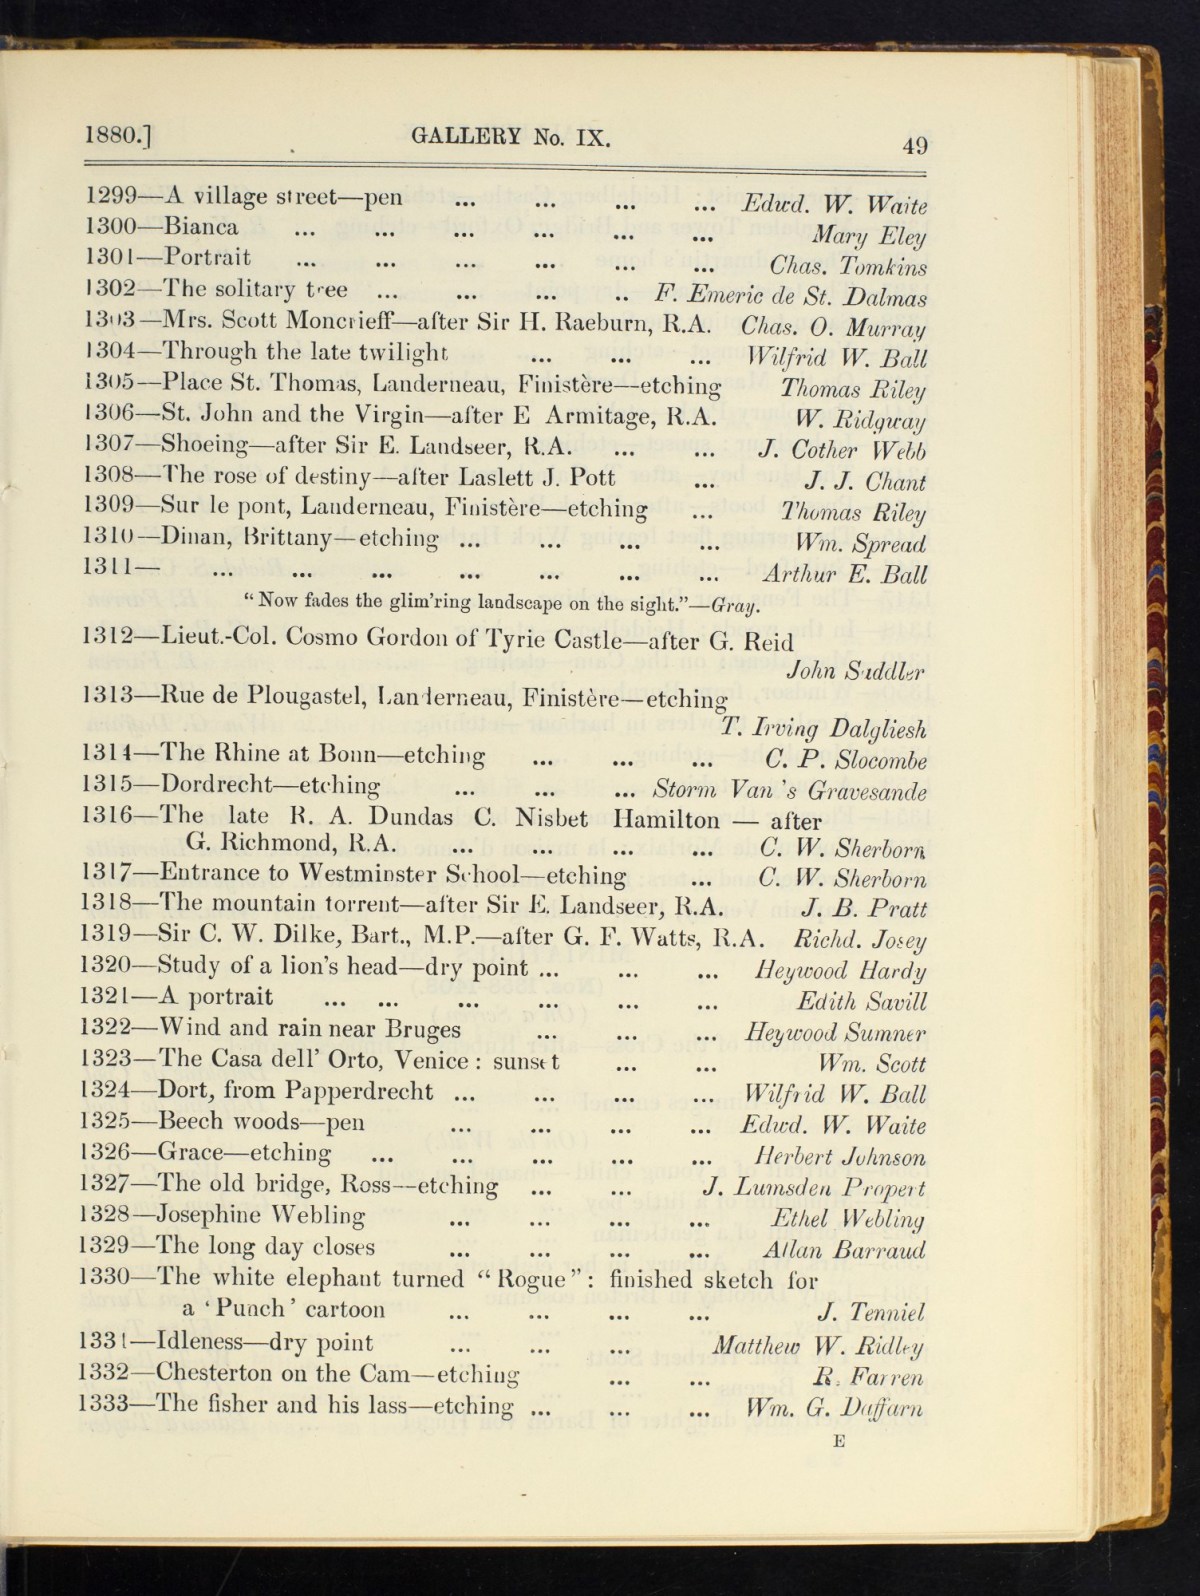 1880.] GALLERY No. IX. 49
1299—A village street—pen ... ... ... ... Edwd. W. Waite
1300—Bianca ... ... ... ... ... ... Mary Eley
1301—Portrait ... ... ... ... ... ... Chas. Tomkins
1302—The solitary tree ... ... ... .. F. Emeric de St. Dalmas
1303—Mrs. Scott Moncrieff—after Sir H. Raeburn, R.A. Chas. O. Murray
1304—Through the late twilight ... ... ... Wilfrid W. Ball
1305—Place St. Thomas, Landerneau, Finistère—etching Thomas Riley
1306—St. John and the Virgin—after E Armitage, R.A. W. Ridgway
1307—Shoeing—after Sir E. Landseer, R.A. ... ... J. Cother Webb
1308—The rose of destiny—after Laslett J. Pott ... J. J. Chant
1309—Sur le pont, Landerneau, Finistère—etching ... Thomas Riley
1310—Dinan, Brittany—etching ... ... ... ... Wm. Spread
1311— ... ... ... ... ... ... ... Arthur E. Ball
"Now fades the glim'ring landscape on the sight."—Gray.
1312—Lieut.-Col. Cosmo Gordon of Tyrie Castle—after G. Reid
John Saddler
1313—Rue de Plougastel, Landerneau, Finistère—etching
T. Irving Dalgliesh
1314—The Rhine at Bonn—etching ... ... ... C. P. Slocombe
1315—Dordrecht—etching ... ... ... Storm Van 's Gravesande
1316—The late R. A. Dundas C. Nisbet Hamilton — after
G. Richmond, R.A. ... ... ... ... C. W. Sherborn
1317—Entrance to Westminster School—etching ... C. W. Sherborn
1318—The mountain torrent—after Sir E. Landseer, R.A. J. B. Pratt
1319—Sir C. W. Dilke, Bart., M.P.—after G. F. Watts, R.A. Richd. Josey
1320—Study of a lion's head—dry point ... ... ... Heywood Hardy
1321—A portrait ... ... ... ... ... ... Edith Savill
1322—Wind and rain near Bruges ... ... ... Heywood Sumner
1323—The Casa dell' Orto, Venice : sunset ... ... Wm. Scott
1324—Dort, from Papperdrecht ... ... ... ... Wilfrid W. Ball
1325—Beech woods—pen ... ... ... ... Edwd. W. Waite
1326—Grace—etching ... ... ... ... ... Herbert Johnson
1327—The old bridge, Ross—etching ... ... J. Lumsden Propert
1328—Josephine Webling ... ... ... ... Ethel Webling
1329—The long day closes ... ... ... ... Allan Barraud
1330—The white elephant turned "Rogue": finished sketch for
a 'Punch' cartoon ... ... ... ... J. Tenniel
1331—Idleness—dry point ... ... ... Matthew W. Ridley
1332—Chesterton on the Cam—etching ... ... R. Farren
1333—The fisher and his lass—etching ... ... ... Wm. G. Daffarn
E